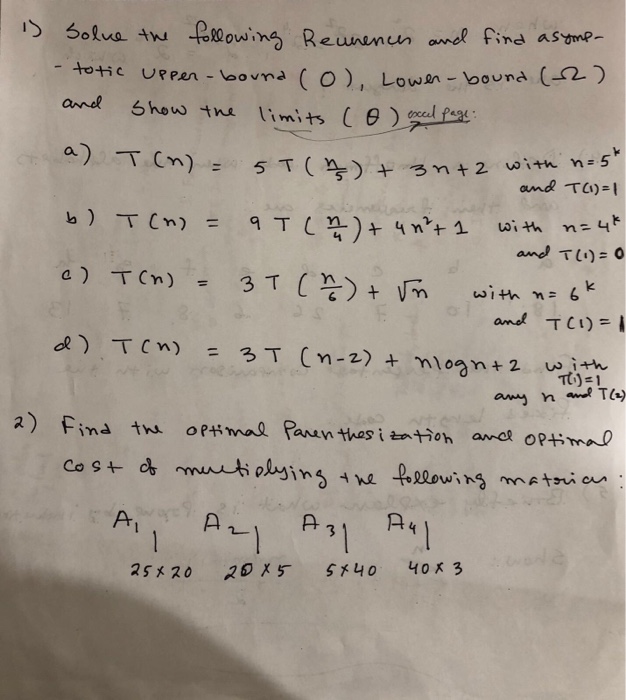 1) Solve the following Recurrences and find asymp-
- totic upper-bound (O), Lower-bound (Ω)
and show the limits (θ) excel page:
a) T(n) = 5T(n/5) + 3n+2 with n=5^k
and T(1)=1
b) T(n) = 9T(n/4) + 4n²+1 with n=4^k
and T(1)=0
c) T(n) = 3T(n/6) + √n with n=6^k
and T(1)=1
d) T(n) = 3T(n-2) + nlogn+2 with
T(1)=1
any n and T(2)
2) Find the optimal Parenthesization and optimal
cost of multiplying the following matrices:
A₁ A₂ A₃ A₄
25×20 20×5 5×40 40×3